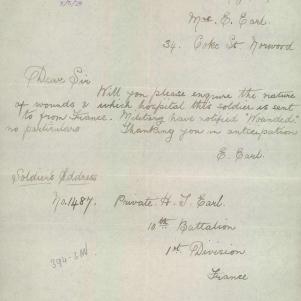 Mrs. E. Earl
34. Coke St. Norwood
Dear Sir
Will you please enquire the nature
of wounds & which hospital this soldier is sent
to from France. Military have notified "Wounded"
no particulars Thanking you in anticipation
E. Earl.
Soldier's Address
No. 1487. Private H. J. Earl.
10th Battalion
1st Division
France